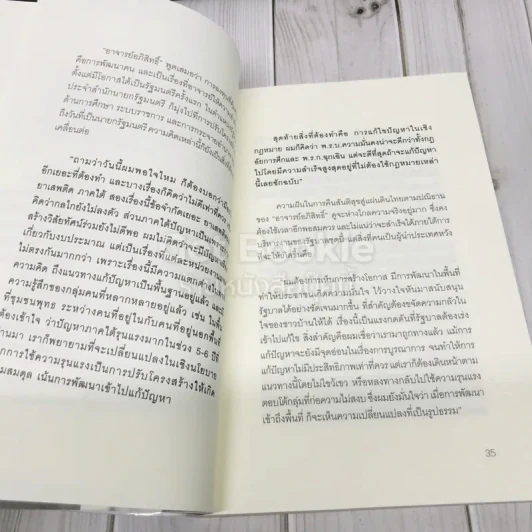 "อาจารย์อภิสิทธิ์" พูดเสมอว่า การลงทุน
คือการพัฒนาคน และเป็นเรื่องที่อาจารย์ได้
ตั้งแต่มีโอกาสได้เป็นรัฐมนตรีครั้งแรก ในตำแหน่ง
ประจำสำนักนายกรัฐมนตรี ก็มุ่งไปที่การปรับ
ด้านการศึกษา ระบบราชการ และการกระจายอำนาจ
ถึงวันที่เป็นนายกรัฐมนตรี ความคิดเหล่านี้ก็ยัง
เคลื่อนต่อ
"ถามว่าวันนี้ผมพอใจไหม ก็ต้องบอกว่า
อีกเยอะที่ต้องทำ และบางเรื่องก็คิดว่าไม่ดีเท่าที่ควร
ยาเสพติด ภาคใต้ สองเรื่องนี้ชี้ข้อจำกัดเยอะ
คิดว่ากลไกยังไม่ลงตัว ส่วนภาคใต้ปัญหาเป็นเพราะ
สร้างวิสัยทัศน์ร่วมยังไม่ดีพอ ผมไม่คิดว่า
เกี่ยวกับงบประมาณ แต่เป็นเรื่องที่แต่ละหน่วยงาน
ไม่ตรงกันมากกว่า เพราะเรื่องนี้มีความแตกต่าง
ความคิด ถึงแนวทางแก้ปัญหาเป็นพื้นฐานอยู่แล้ว
ความรู้สึกของกลุ่มคนที่หลากหลายอยู่แล้ว เช่น ในพื้นที่
ที่ชุมชนพุทธ ระหว่างคนที่อยู่ในกับคนที่อยู่นอกพื้นที่
ต้องเข้าใจ ว่าปัญหาภาคใต้รุนแรงมากในช่วง 5-6 ปีที่
านมา เราก็พยายามที่จะเปลี่ยนแปลงในเชิงนโยบาย
กการใช้ความรุนแรงเป็นการปรับโครงสร้างให้เกิด
มสมดุล เน้นการพัฒนาเข้าไปแก้ปัญหา
สุดท้ายสิ่งที่ต้องทำคือ การแก้ไขปัญหาในเชิง
กฎหมาย ผมก็คิดว่า พ.ร.บ.ความมั่นคงน่าจะดีกว่าทั้งกฎ
อัยการศึกและ พ.ร.ก.ฉุกเฉิน แต่จะดีที่สุดถ้าจะแก้ปัญหา
ไปโดยมีความสำเร็จสูงสุดอยู่ที่ไม่ต้องใช้กฎหมายเหล่า
นี้เลยซักฉบับ"
ความฝันในการคืนสันติสุขสู่แผ่นดินไทยตามปณิธาน
ของ "อาจารย์อภิสิทธิ์" ดูจะห่างไกลความจริงอยู่มาก ซึ่งคง
ต้องใช้เวลาอีกพอสมควร และไม่แน่ว่าจะสำเร็จได้ภายใต้การ
บริหารงานของรัฐบาลชุดนี้ แต่สิ่งที่คนเป็นผู้นำประเทศหวัง
ที่จะให้เกิดขึ้นคือ
"ผมเชื่อว่าการสร้างโอกาส มีการพัฒนาในพื้นที่
ทำให้ประชาชนเกิดความมั่นใจ ไว้วางใจหันมาสนับสนุน
รัฐบาลได้อย่างชัดเจนมากขึ้น ที่สำคัญต้องขจัดความกลัวใน
ใจของชาวบ้านให้ได้ เรื่องนี้เป็นแรงกดดันที่รัฐบาลต้องเร่ง
เข้าไปแก้ไข สิ่งสำคัญคือผมเชื่อว่าเรามาถูกทางแล้ว แม้การ
แก้ปัญหาจะยังมีจุดอ่อนในเรื่องการบูรณาการ จนทำให้การ
แก้ปัญหาไม่มีประสิทธิภาพเท่าที่ควร แต่เราก็ต้องเดินหน้าตาม
แนวทางนี้โดยไม่ไขว้เขว หรือหลงทางกลับไปใช้ความรุนแรง
ตอบโต้กลุ่มที่ก่อความไม่สงบ ซึ่งผมยังมั่นใจว่า เมื่อการพัฒนา
เข้าถึงพื้นที่ ก็จะเห็นความเปลี่ยนแปลงที่เป็นรูปธรรม"
35